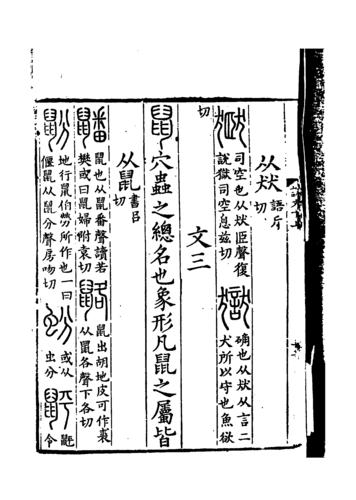 从㹜語斤切
司空也从㹜𦣞聲復
說獄司空息兹切
獄确也从㹜从言二
犬所以守也魚欲
切
文三
鼠穴蟲之總名也象形凡鼠之屬皆
从鼠書呂切
䶈鼠也从鼠番聲讀若
樊或曰鼠婦附袁切
䶅鼠出胡地皮可作裘
从鼠各聲下各切
鼢地行鼠伯勞所作也一曰
偃鼠从鼠分聲房吻切
蚡或从
虫分
令